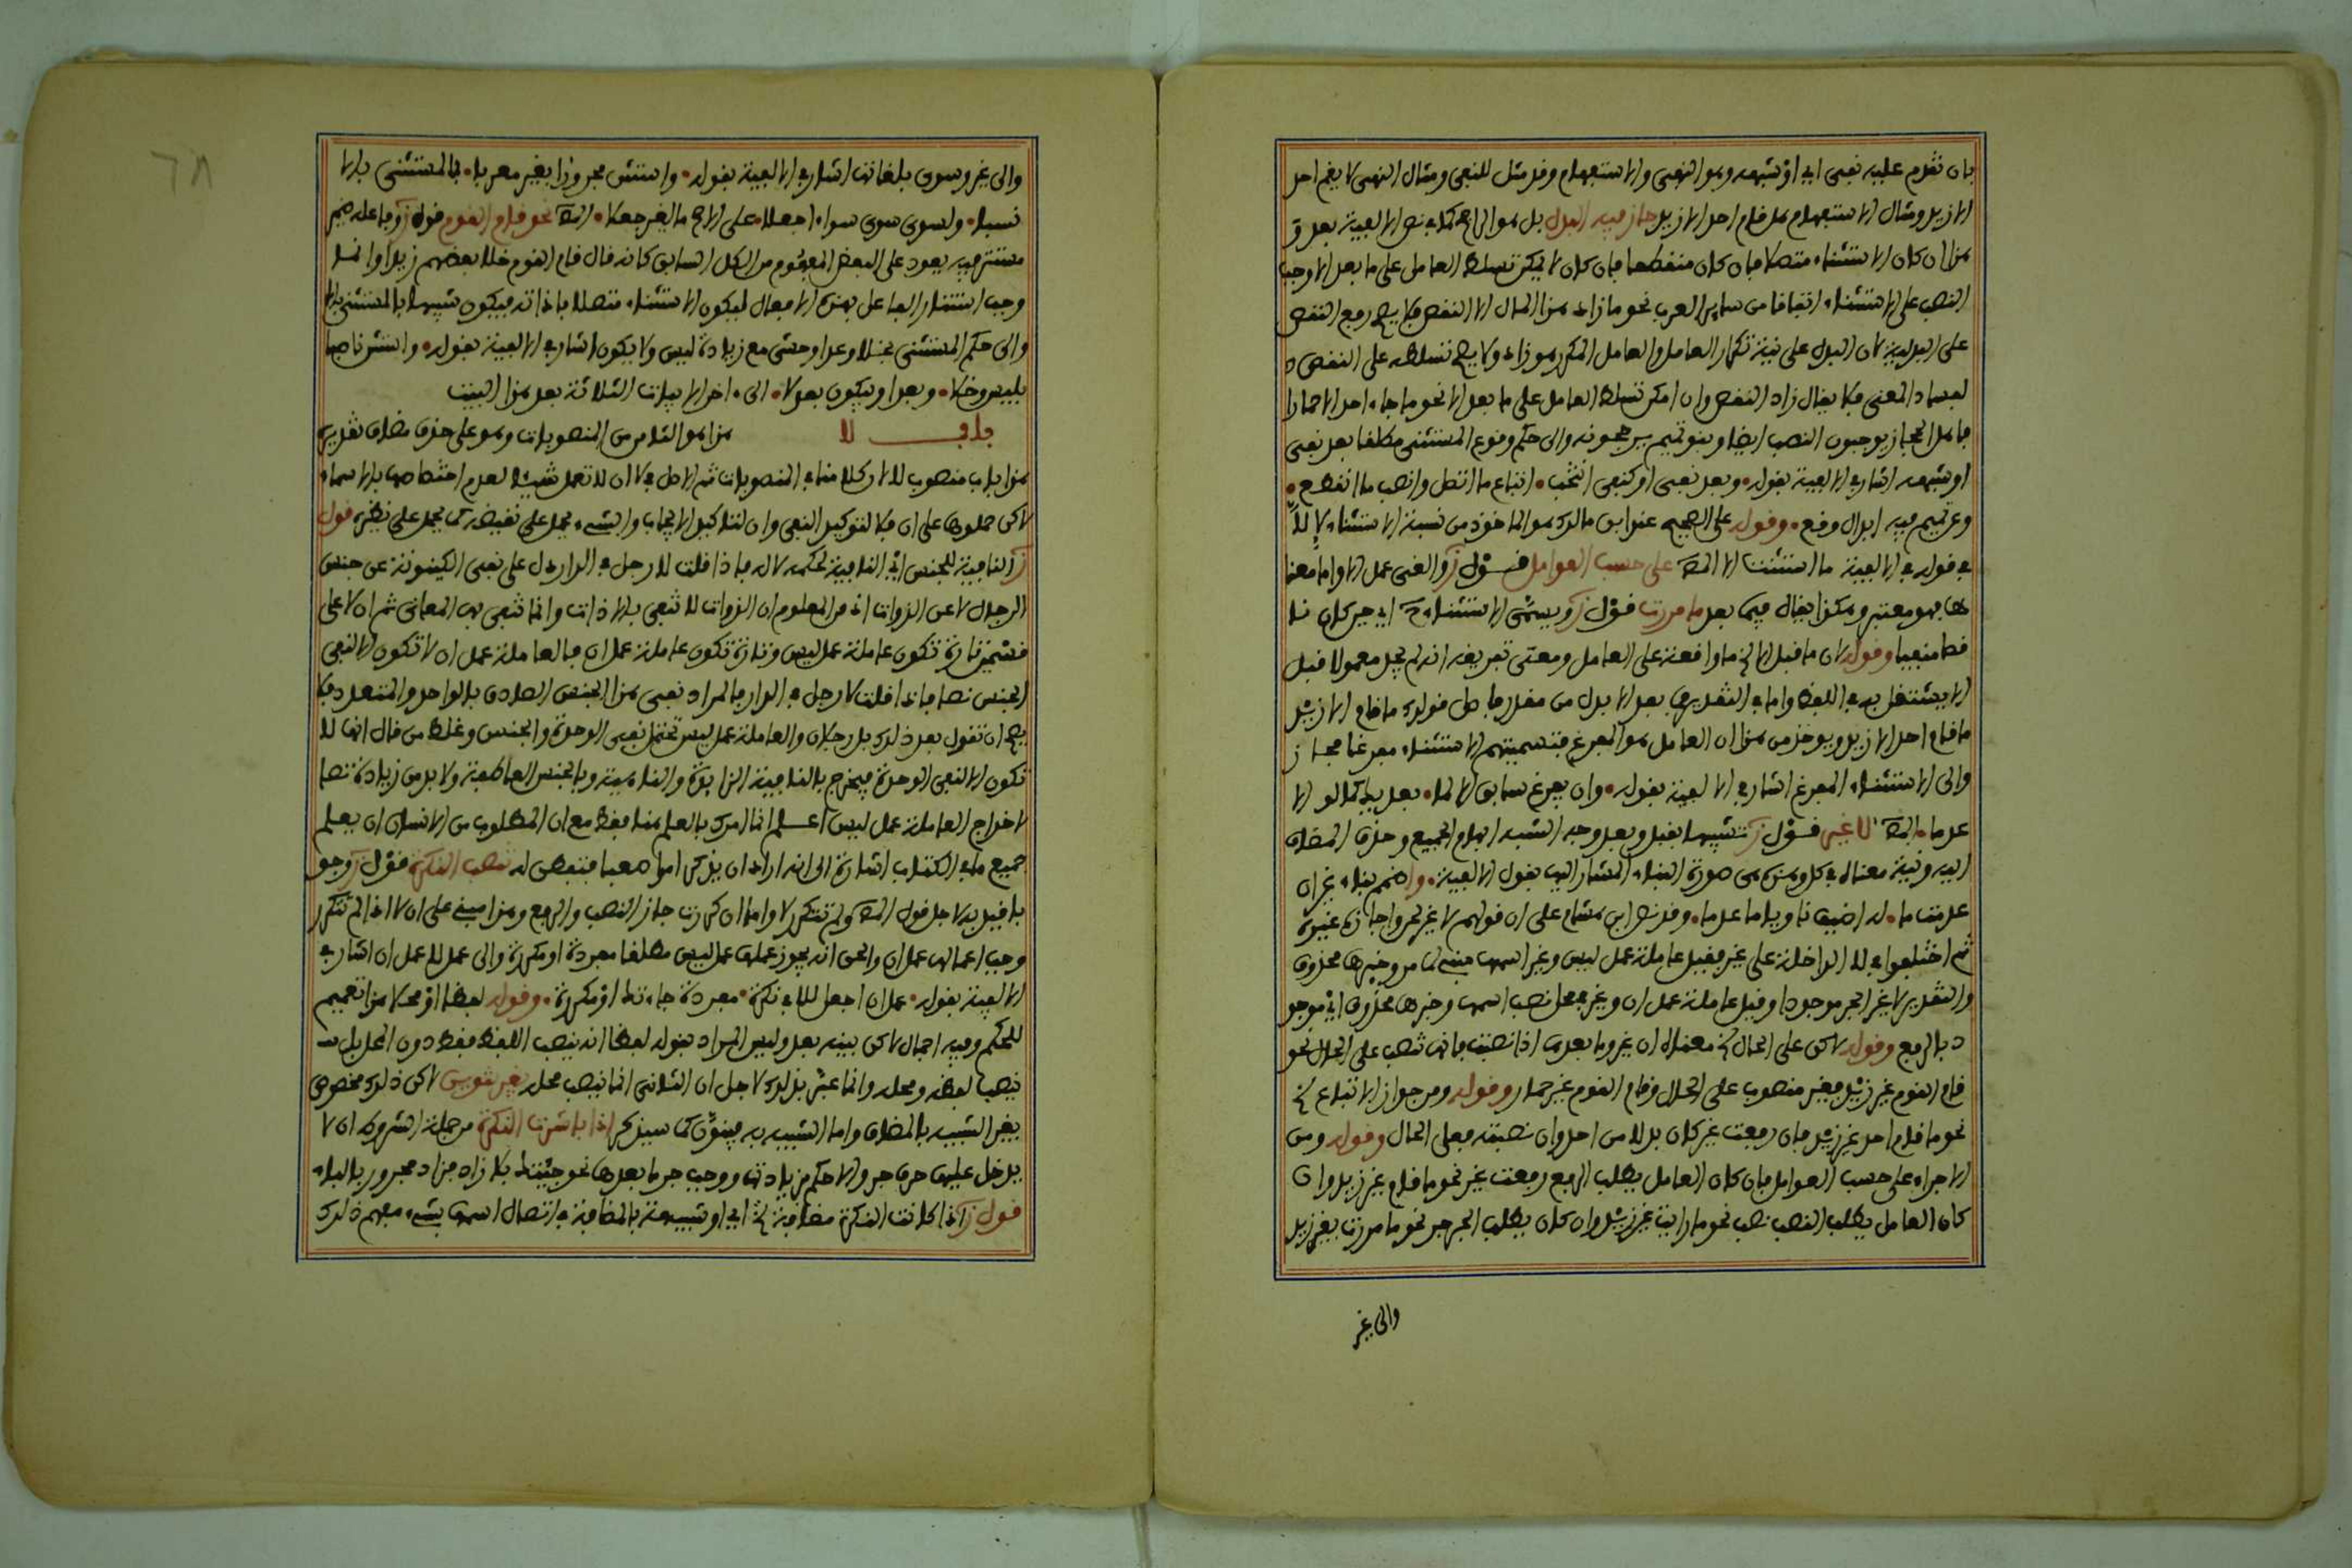 فإن تقدم عليه نفي أي أو شبهه وهو النهي والاستفهام وقد مثل للنفي ومثال النهي لا يقم أحد
إلا زيد ومثال الاستفهام هل قام أحد إلا زيد جاز فيه البدل بل هو الراجح كما في نص الالفية بعد و
هذا إن كان الاستثناء متصلا فإن كان منقطعا فإن كان لا يمكن تسلط العامل على ما بعد إلا وجب
النصب على الاستثناء اتفاقا من ساير العرب نحو ما زاد هذا المال إلا النقص فلا يصح رفع النقص
على البدلية لأن البدل على نية تكرار العامل والعامل المكرر هو زاد ولا يصح تسلطه على النقص
لفساد المعنى فلا يقال زاد النقص وإن أمكن تسلط العامل على ما بعد إلا نحو ما جاء أحد إلا حمارا
فأهل الحجاز يوجبون النصب أيضا وبنو تميم يرجحونه وإلى حكم وقوع المستثنى مطلقا بعد نفي
أو شبهه أشار في الالفية بقوله وبعد نفي أو كنفي انتخب اتباع ما اتصل وانصب ما انقطع
وعن تميم فيه إبدال وقع وقوله على الصحيح عند ابن مالك هو الماخوذ من نسبة الاستثناء لإلا
في قوله في الالفية ما استثنت إلا الخ على حسب العوامل قول ز والغى عمل إلا وأما معنا
ها فهو معتبر وهكذا يقال فيما بعد ما مررت قول ز ويسمى الاستثناء ح أي حين كان نا
قصا منفيا وقوله لأن ما قبل إلا الخ ما واقعة على العامل ومعنى تفريغه انه لم يجد معمولا قبل
إلا يشتغل به في اللفظ وأما في التقدير فهي بعد إلا بدل من مقدر فأصل قولك ما قام إلا زيد
ما قام أحد إلا زيد ويوخذ من هذا ان العامل هو المفرغ فتسميتهم الاستثناء مفرغا مجاز
وإلى الاستثناء المفرغ أشار في الالفية بقوله وإن يفرغ سابق إلا لما بعد يكن كما لو إلا
عدما الخ لا غير قول ز تشبيها بقبل وبعد وجه الشبه ابهام الجميع وحذف المضاف
إليه ونية معناه في كل وهذه هي صورة البناء المشار إليها بقول الالفية واضمم بناء غيرا ان
عدمت ما له اضيف ناويا ما عدما وقد نص ابن هشام على ان قولهم لا غير لحن واجازه غيره
ثم اختلفوا في لا الداخلة على غير فقيل عاملة عمل ليس وغير اسمها وخبرها محذوف
والتقدير لا غير الجر موجودا وقيل عاملة عمل ان وغير في محل نصب اسمها وخبرها محذوف أي موجو
د بالرفع وقوله لاكن على الحال الخ معناه ان غير وما بعدها اذا نصبت فانها تنصب على الحال نحو
قام القوم غير زيد فغير منصوب على الحال وقام القوم غير حمار وقوله ومن جواز الاتباع الخ
نحو ما قام أحد غير زيد فإن رفعت غير كان بدلا من احد وإن نصبته فعلى الحال وقوله ومن
الاجراء على حسب العوامل فإن كان العامل يطلب الرفع رفعت غير نحو ما قام غير زيد وان
كان العامل يطلب النصب نصب نحو ما رايت غير زيد وان كان يطلب الجر جر نحو ما مررت بغير زيد
والى غير
والى غير وسوى بلغاتها اشار في الالفية بقوله واستثن مجرورا بغير معربا بما لمستثنى بالا
نسبا ولسوى سوى سواء اجعلا على الاصح ما لغير جعلا الخ نحو قام القوم قوله ز وفاعله ضمير
مستتر فيه يعود على البعض المفهوم من الكل السابق كانه قال قام القوم خلا بعضهم زيدا وانما
وجب استتار الفاعل بهذه الافعال ليكون الاستثناء متصلا باداته فيكون شبيها بالمستثنى بالا
والى حكم المستثنى بخلا وعدا وحشى مع زيادة ليس ولا يكون اشار في الالفية بقوله واستثن ناصبا
بليس وخلا وبعدا وبيكون بعد لا الى اخر الابيات الثلاثة بعد هذا البيت
باب لا هذا هو الثامن من المنصوبات وهو على حذف مضاف تقديره
هذا باب منصوب لا اذ كلامنا في المنصوبات ثم الاصل في لا ان لا تعمل شيئا لعدم اختصاصها بالاسماء
لاكن حملوها على ان فلا لتوكيد النفي وان لتاكيد الايجاب والشيء يحمل على نقيضه كما يحمل على نظيره قول
ز النافية للجنس أي النافية لحكمه لا له فاذا قلت لا رجل في الدار دل على نفي الكينونة عن جنس
الرجال لا عن الذوات اذ من المعلوم ان الذوات لا تنفى بالاذوات وانما تنفى بها المعاني ثم ان لا على
قسمين تارة تكون عاملة عمل ليس وتارة تكون عاملة عمل ان فالعاملة عمل ان لا تكون الا لنفي
الجنس نصا فاذا قلت لا رجل في الدار فالمراد نفي هذا الجنس الصادق بالواحد والمتعدد فلا
يصح ان تقول بعد ذلك بل رجلان والعاملة عمل ليس تحتمل نفي الوحدة والجنس وغلط من قال انها لا
تكون الا لنفي الوحدة فيخرج بالنافية الزايدة والناهية وبالجنس العاطفة ولا بد من زيادة نصا
لاخراج العاملة عمل ليس اعلم انما امرك بالعلم هنا فقط مع ان المطلوب من الانسان ان يعلم
جميع ما في الكتاب اشارة الى انه اراد ان يذكر امرا صعبا فتفطن له تنصب النكرة قول ز وجو
با قيد به لاجل قول الخ ولم تتكرر لا واما ان كررت جاز النصب والرفع وهذا مبني على ان لا اذا لم تتكرر
وجب اعمالها عمل ان والحق انه يجوز عملها عمل ليس مطلقا مفردة او مكررة والى عمل لا عمل ان اشار في
الالفية بقوله عمل ان اجعل للا في نكره مفردة جاءتك او مكررة وقوله لفظا او محلا هذا تعميم
للحكم وفيه اجمال لاكن بينه بعد وليس المراد بقوله لفظا انه ينصب اللفظ فقط دون المحل بل
ينصب لفظه ومحله وانما عبر بذلك لاجل ان الثاني انما ينصب محله بغير تنوين لاكن ذلك مخصوص
بغير الشبيه بالمضاف واما الشبيه به فينون كما سيذكر اذا باشرت النكرة من جملة الشروط ان لا
يدخل عليها حرف جر والا حكم بزيادتها ووجب جر ما بعدها نحو جئتك بلا زاد فزاد مجرور بالباء
قول ز اذا كانت النكرة مضافة الخ أي او شبيهة بالمضافة في اتصال اسمها بشيء مبهم ذلك